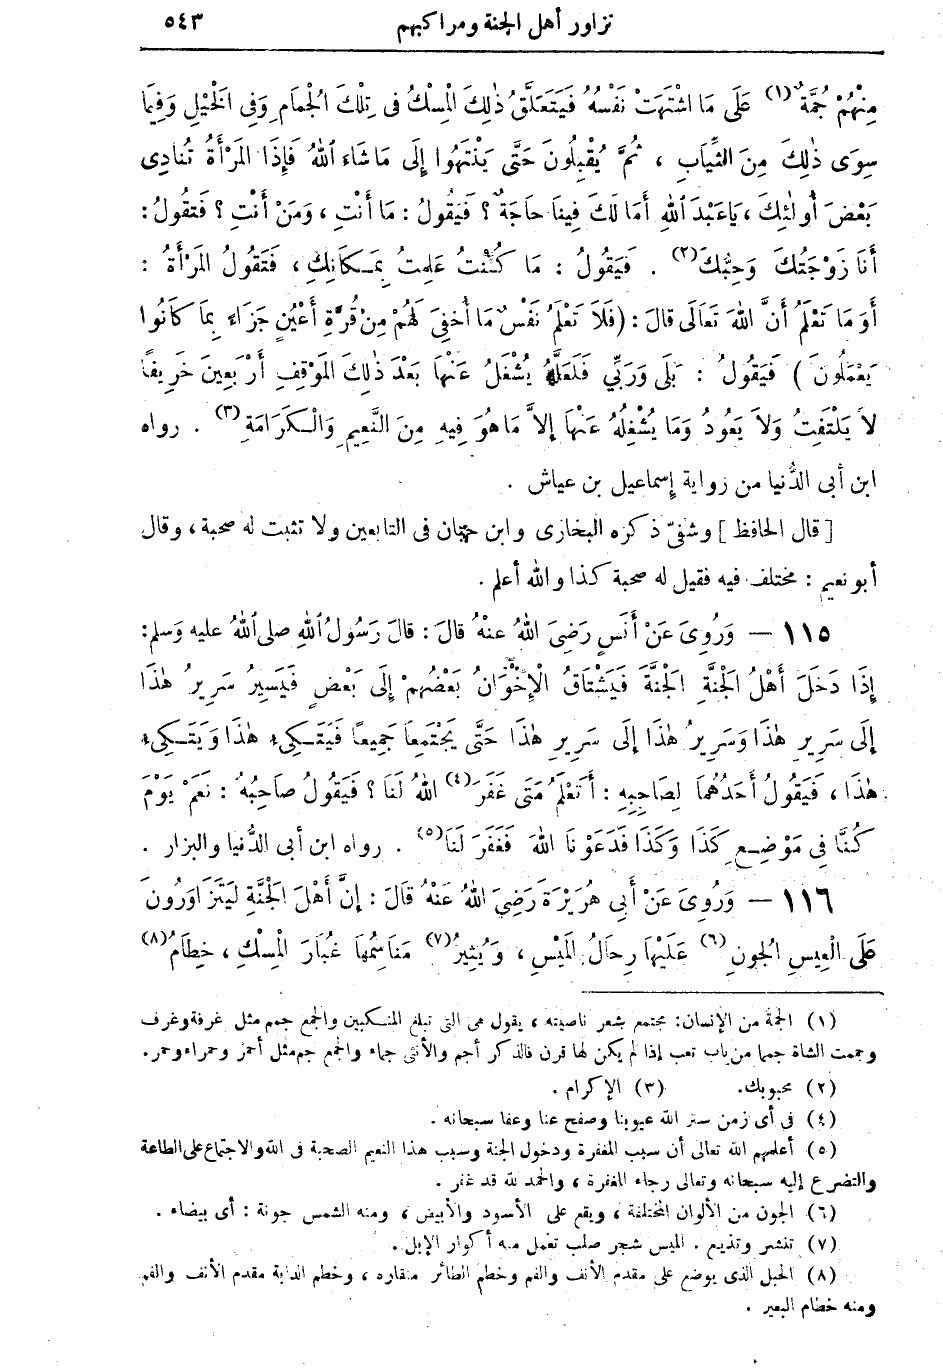 تزاور أهل الجنة ومراكبهم ٥٤٣
مِنْهُمْ جُمَّةٌ (١) عَلَى مَا اشْتَهَتْ نَفْسُهُ فَيَتَعَلَّقُ ذٰلِكَ الْمِسْكُ فى تِلْكَ الْجُمَامِ وَفِى الْخَيْلِ وَفِيمَا
سِوَى ذٰلِكَ مِنَ الثِّيَابِ ، ثُمَّ يُقْبِلُونَ حَتَّى يَنْتَهُوا إِلَى مَا شَاءَ اللهُ فَإِذَا الْمَرْأَةُ تُنَادِى
بَعْضَ أُولٰئِكَ ، يَاعَبْدَ اللهِ أَمَا لَكَ فِينَا حَاجَةٌ ؟ فَيَقُولُ : مَا أَنْتِ ، وَمَنْ أَنْتِ ؟ فَتَقُولُ :
أَنَا زَوْجَتُكَ وَحِبُّكَ (٢) . فَيَقُولُ : مَا كُنْتُ عَلِمْتُ بِمَكَانِكِ ، فَتَقُولُ الْمَرْأَةُ :
أَوَ مَا تَعْلَمُ أَنَّ اللهَ تَعَالَى قالَ : (فَلَا تَعْلَمُ نَفْسٌ مَا أُخْفِىَ لَهُمْ مِنْ قُرَّةِ أَعْيُنٍ جَزَاءً بِمَا كَانُوا
يَعْمَلُونَ ) فَيَقُولُ : بَلَى وَرَبِّي فَلَعَلَّهُ يُشْغَلُ عَنْهَا بَعْدَ ذٰلِكَ الْمَوْقِفِ أَرْبَعِينَ خَرِيفًا
لاَ يَلْتَفِتُ وَلاَ يَعُودُ وَمَا يُشْغِلُهُ عَنْهَا إِلاَّ مَا هُوَ فِيهِ مِنَ النَّعِيمِ وَالْكَرَامَةِ (٣) . رواه
ابن أبى الدُّنيا من رواية إسماعيل بن عياش .
[ قال الحافظ ] وشفىّ ذكره البخارى وابن حبان فى التابعين ولا تثبت له صحبة ، وقال
أبو نعيم : مختلف فيه فقيل له صحبة كذا والله أعلم .
١١٥ — وَرُوِىَ عَنْ أَنَسٍ رَضِىَ اللهُ عَنْهُ قالَ : قالَ رَسُولُ اللهِ صلى اللهُ عليه وَسلم :
إِذَا دَخَلَ أَهْلُ الْجَنَّةِ الْجَنَّةَ فَيَشْتَاقُ الْإِخْوَانُ بَعْضُهُمْ إِلَى بَعْضٍ فَيَسِيرُ سَرِيرُ هٰذَا
إِلَى سَرِيرِ هٰذَا وَسَرِيرُ هٰذَا إِلَى سَرِيرِ هٰذَا حَتَّى يَجْتَمِعَا جَمِيعًا فَيَتَّكِىءُ هٰذَا وَيَتَّكِىءُ
هٰذَا ، فَيَقُولُ أَحَدُهُمَا لِصَاحِبِهِ : أَتَعْلَمُ مَتَى غَفَرَ (٤) اللهُ لَنَا ؟ فَيَقُولُ صَاحِبُهُ : نَعَمْ يَوْمَ
كُنَّا فِي مَوْضِعِ كَذَا وَكَذَا فَدَعَوْنَا اللهَ فَغَفَرَ لَنَا (٥) . رواه ابن أبى الدُّنيا والبزار .
١١٦ — وَرُوِىَ عَنْ أَبِي هُرَيْرَةَ رَضِىَ اللهُ عَنْهُ قَالَ : إِنَّ أَهْلَ الْجَنَّةِ لَيَتَزَاوَرُونَ
عَلَى الْعِيسِ الْجُونِ (٦) عَلَيْهَا رِحَالُ الْمَيْسِ ، وَيُثِيرُ (٧) مَنَاسِمُهَا غُبَارَ الْمِسْكِ ، خِطَامُ (٨)
(١) الجمة من الإنسان : مجتمع بشعر ناصيته ، يقول هى التى تبلغ المنكبين والجمع جمم مثل غرفة وغرف
وجممت الشاة جمما من باب تعب إذا لم يكن لها قرن فالذكر أجم والأنثى جماء والجمع جم مثل أحمر وحمراء وحمر .
(٢) محبوبك . (٣) الإكرام .
(٤) فى أى زمن ستر الله عيوبنا وصفح عنا وعفا سبحانه .
(٥) أعلمهم الله تعالى أن سبب المغفرة ودخول الجنة وسبب هذا النعيم الصحبة فى الله والاجتماع على الطاعة
والتضرع إليه سبحانه وتعالى رجاء المغفرة ، والحمد لله قد غفر .
(٦) الجون من الألوان المختلفة ، ويقع على الأسود والأبيض ، ومنه الشمس جونة : أى بيضاء .
(٧) تنشر وتذيع . الميس شجر صلب تعمل منه أكوار الإبل .
(٨) الحبل الذى يوضع على مقدم الأنف والفم وخطم الطائر منقاره ، وخطم الدابة مقدم الأنف والفم
ومنه خطام البعير .